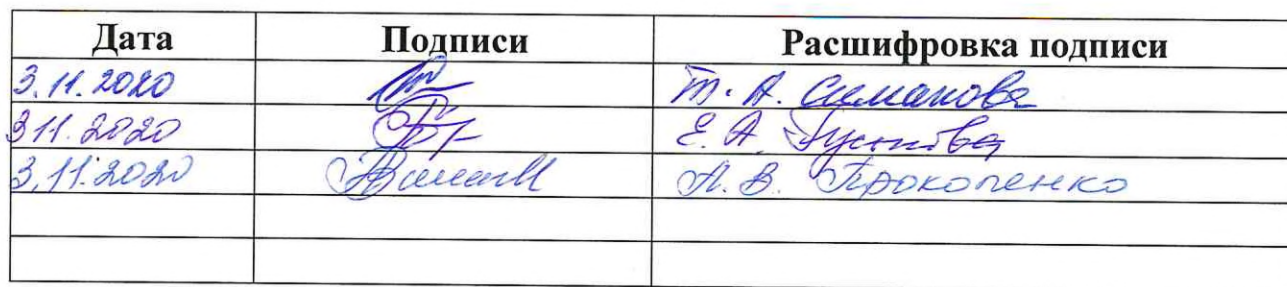 Дата Подписи Расшифровка подписи
3.11.2020 Т. А. Симанова
3 11. 2020 Е. А.
3.11.2020 А. В. Прокопенко